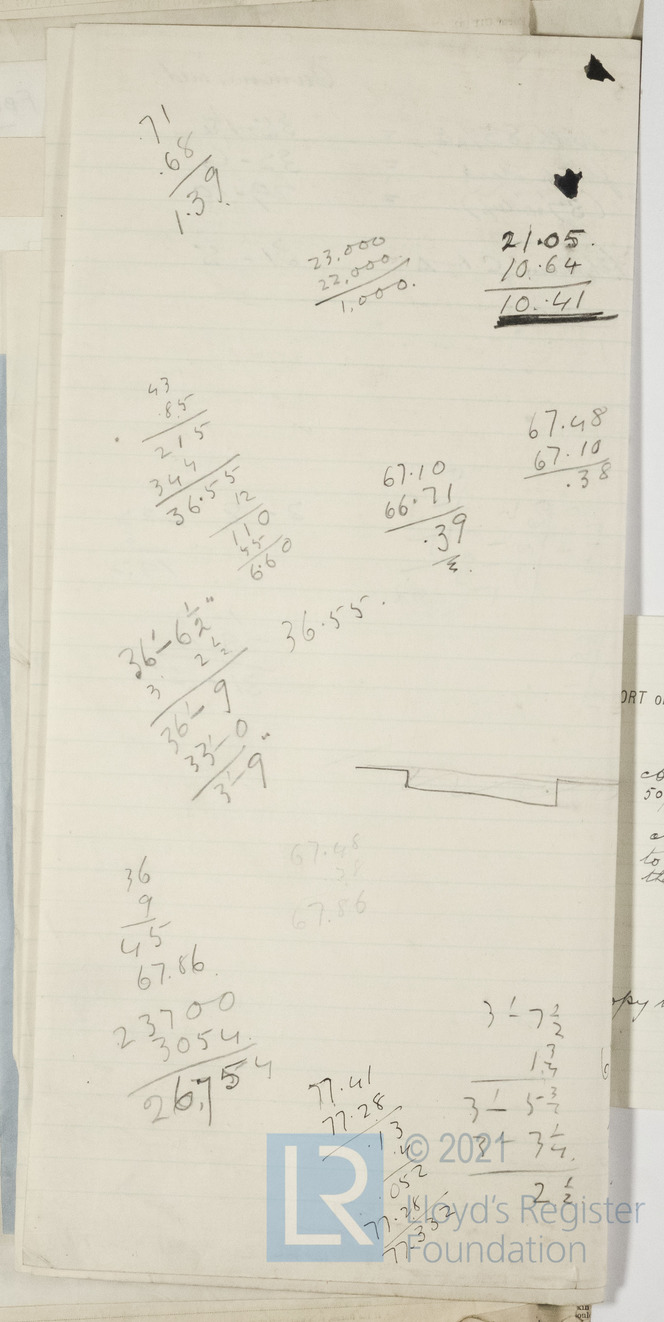 .71
.68
1.39.
23,000
22,000
1,000.
21.05.
10.64
10.41
43
.85
215
344
36.55
12
110
55
6.60
67.48
67.10
.38
67.10
66.71
.39
36'-6½"
2½
36'-9
33'-0
3'-9"
36.55.
67.48
38
67.86
36
9
45
67.86.
23700
3054
26,754
77.41
77.28
.13
.4
.052
77.28
77.332
3'-7½
1¾
3'-5¾
3'-3¼
2½
© 2021
Lloyd's Register
Foundation
LR
ORT O